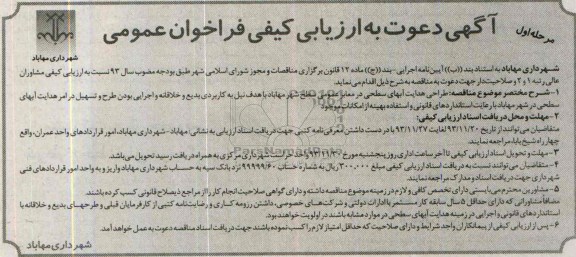 آگهی دعوت به ارزیابی کیفی فراخوان عمومی
مرحله اول
شهرداری مهاباد
شهرداری مهاباد به استناد بند ((ب)) آیین نامه اجرایی-بند ((ج)) ماده ۱۲ قانون برگزاری مناقصات و مجوز شورای اسلامی شهر طبق بودجه مصوب سال ۹۳ نسبت به ارزیابی کیفی مشاوران
عالی رتبه ۱ و ۲ و صلاحیت دار جهت دعوت به مناقصه به شرح ذیل اقدام می نماید.
۱- شرح مختصر موضوع مناقصه: طراحی هدایت آبهای سطحی در معابر عمومی سطح شهر مهاباد با هدف نیل به کاربردی بدیع و خلاقانه و اجرایی بودن طرح و تسهیل در امر هدایت آبهای
سطحی در شهر مهاباد با رعایت استانداردهای قانونی و استفاده بهینه از امکانات موجود
۲- مهلت و محل دریافت اسناد ارزیابی کیفی:
متقاضیان می توانند از تاریخ ۹۳/۱۱/۲۰ لغایت ۹۳/۱۱/۲۷ با در دست داشتن معرفی نامه کتبی جهت دریافت اسناد ارزیابی به نشانی: مهاباد - شهرداری مهاباد، امور قراردادهای واحد عمران، واقع
چهار راه شیخ بابا، مراجعه نمایند.
۳- مهلت و تحویل اسناد ارزیابی کیفی تا آخر ساعت اداری روز پنجشنبه مورخ ۹۳/۱۱/۳۰ واحد حراست شهرداری مرکزی به همراه دریافت رسید تحویل می باشد.
۴- متقاضیان می توانند نسبت به دریافت اسناد ارزیابی کیفی مبلغ ۳۰۰۰۰۰ ریال به شماره حساب ۹۹۹۹۹/۶۰ نزد بانک سپه به حساب شهرداری مهاباد واریز و به واحد امور قراردادهای فنی
شهرداری جهت دریافت اسناد و مدارک مراجعه نمایند.
۵- مشاورین محترم می بایستی دارای تخصص کافی و لازم در زمینه موضوع مناقصه داشته و دارای گواهی صلاحیت انجام کار را از مراجع ذیصلاح قانونی کسب کرده باشند.
مضافا مشاورانی که دارای حداقل ۵ سال سابقه کار مستمر با ادارات دولتی و شرکت های خصوصی، داشتن رزومه کساری و رضایت نامه کتبی از کارفرمایان قبلی و طرحهای بدیع و خلاقانه با
استانداردهای قانونی و اجرایی در زمینه هدایت آبهای سطحی در موارد مشابه باشند در اولویت خواهند بود.
۶- پس از ارزیابی کیفی از پیمانکاران واجد شرایط و دارای صلاحیت که حداقل امتیاز لازم را کسب نموده باشند جهت دریافت اسناد مناقصه دعوت به عمل خواهد آمد.
شهرداری مهاباد